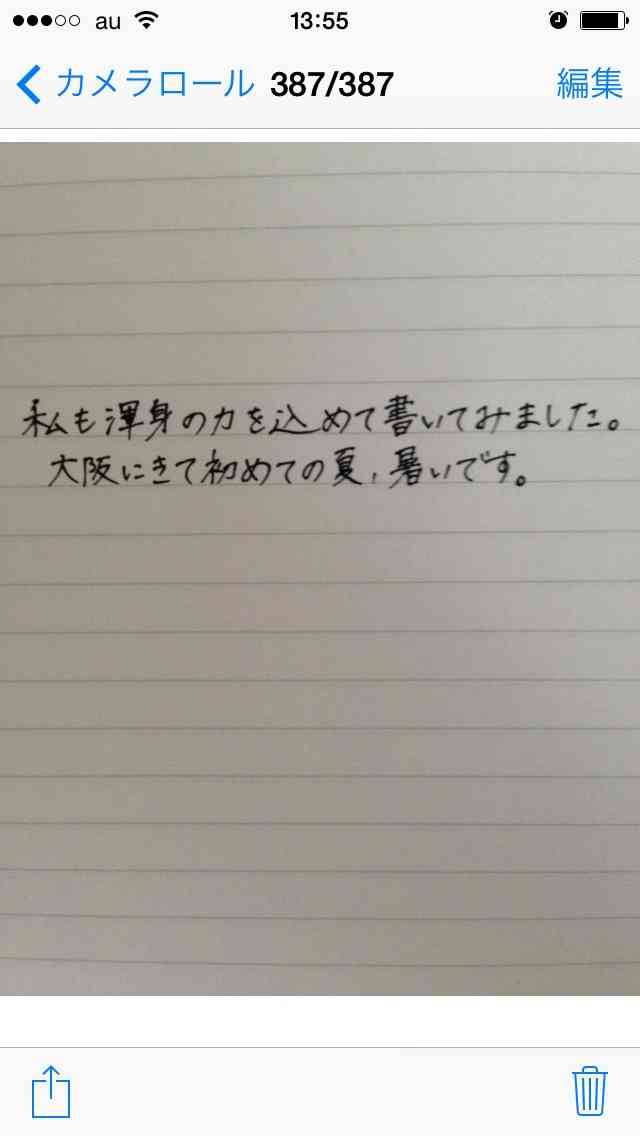 au 13:55
カメラロール 387/387 編集
私も渾身の力を込めて書いてみました。
大阪にきて初めての夏,暑いです。